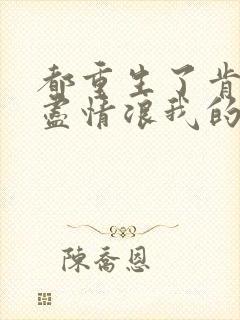 都重生了肯
盡情浪我的
陳喬恩